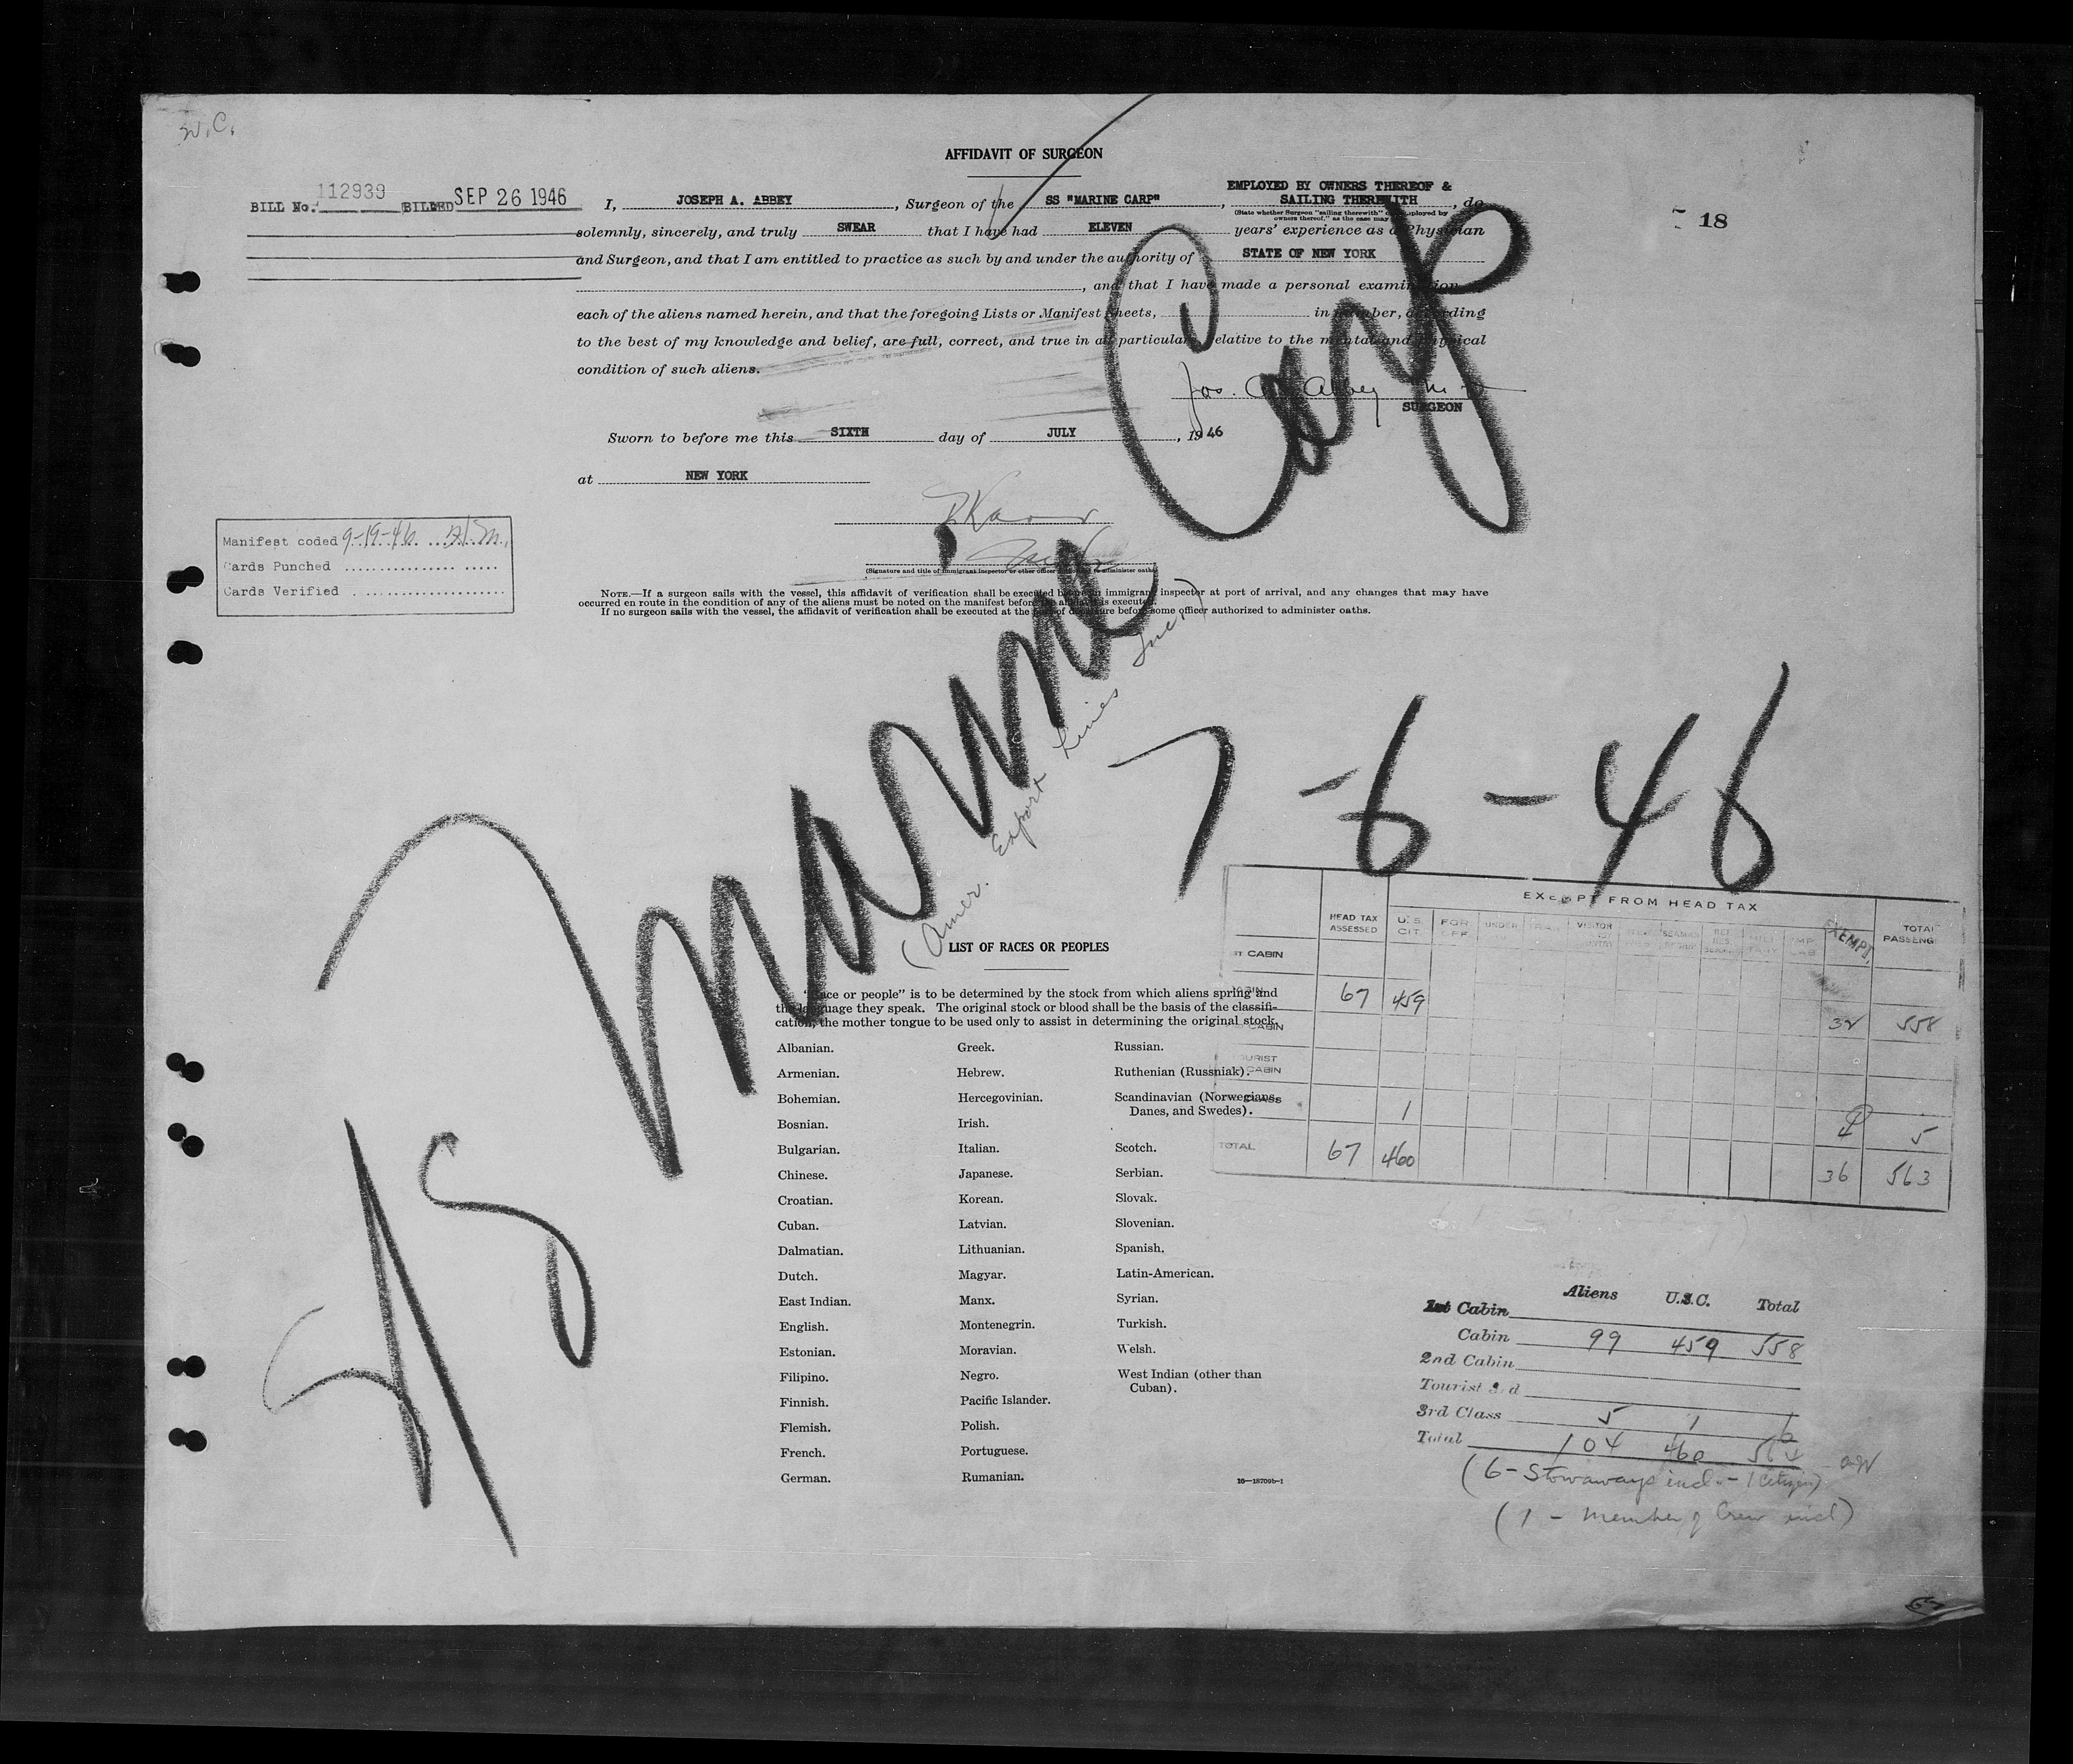 W.C.
AFFIDAVIT OF SURGEON
BILL No. 112939 BILLED SEP 26 1946
I, JOSEPH A. ABBEY, Surgeon of the SS "MARINE CARP", EMPLOYED BY OWNERS THEREOF & SAILING THEREWITH, do
(State whether Surgeon "sailing therewith" or employed by owners thereof," as the case may
- 18
solemnly, sincerely, and truly SWEAR that I have had ELEVEN years' experience as a Physician
and Surgeon, and that I am entitled to practice as such by and under the authority of STATE OF NEW YORK
, and that I have made a personal examination
each of the aliens named herein, and that the foregoing Lists or Manifest Sheets, in number, according
to the best of my knowledge and belief, are full, correct, and true in all particulars relative to the mental and physical
condition of such aliens.
Jos. A. Abbey M D
SURGEON
Sworn to before me this SIXTH day of JULY, 1946
at NEW YORK
(Signature and title of immigrant inspector or other officer authorized to administer oaths)
Manifest coded 9-19-46
Cards Punched
Cards Verified
NOTE.—If a surgeon sails with the vessel, this affidavit of verification shall be executed before an immigrant inspector at port of arrival, and any changes that may have
occurred en route in the condition of any of the aliens must be noted on the manifest before the affidavit is executed.
If no surgeon sails with the vessel, the affidavit of verification shall be executed at the port of departure before some officer authorized to administer oaths.
SS Marine Carp
(Amer. Export Lines Inc.)
7-6-46
EXCEPT FROM HEAD TAX
HEAD TAX ASSESSED U.S. CIT. FOR OFF UNDER TRAN VISITOR EXEMPT. TOTAL PASSENG
ST CABIN
CABIN 67 459 32 558
CABIN
TOURIST
CABIN
CLASS 1 4 5
TOTAL 67 460 36 563
LIST OF RACES OR PEOPLES
"Race or people" is to be determined by the stock from which aliens spring and
the language they speak. The original stock or blood shall be the basis of the classifi-
cation, the mother tongue to be used only to assist in determining the original stock.
Albanian. Greek. Russian.
Armenian. Hebrew. Ruthenian (Russniak).
Bohemian. Hercegovinian. Scandinavian (Norwegians,
Danes, and Swedes).
Bosnian. Irish.
Bulgarian. Italian. Scotch.
Chinese. Japanese. Serbian.
Croatian. Korean. Slovak.
Cuban. Latvian. Slovenian.
Dalmatian. Lithuanian. Spanish.
Dutch. Magyar. Latin-American.
East Indian. Manx. Syrian.
English. Montenegrin. Turkish.
Estonian. Moravian. Welsh.
Filipino. Negro. West Indian (other than
Cuban).
Finnish. Pacific Islander.
Flemish. Polish.
French. Portuguese.
German. Rumanian.
16—18709b-1
Aliens U.S.C. Total
1st Cabin
Cabin 99 459 558
2nd Cabin
Tourist 3rd
3rd Class 5 1 6
Total 104 460 564
(6 - Stowaways incl. - 1 Citizen)
(1 - Member of Crew incl)